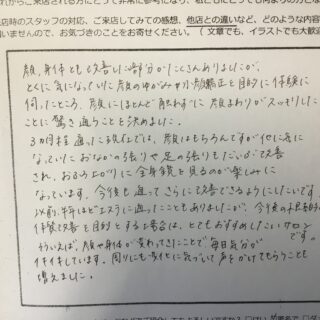 れからご来店される方にとって非常に参考になり、私どもにとっても何よりの力とな
店時のスタッフの対応、ご来店してみての感想、他店との違いなど、どのような内容
いませんので、お気づきのことをお寄せください。（文章でも、イラストでも大歓迎
顔、身体とも改善したい部分がたくさんありましたが、
とくに気になっていた顔のゆがみや小顔矯正を目的に体験に
伺ったところ、顔にほとんど触れずに顔まわりがスッキリした
ことに驚き通うことを決めました。
3カ月程通った現在では、顔はもちろんですが他に気に
なっていたおなかの張りや足の張りもだいぶ改善
され、おふろ上りに全身鏡を見るのが楽しみに
なっています。今後も通ってさらに改善できるようにしたいです
以前、特殊なエステに通ったこともありましたが、今後の根本的な
体質改善を目的とする場合は、とてもおすすめしたいサロン
です。
そういえば、顔や身体が変わってきたことで毎日気分が
イキイキしています。周りにも変化に気づいて声をかけてもらうことも
増えました。